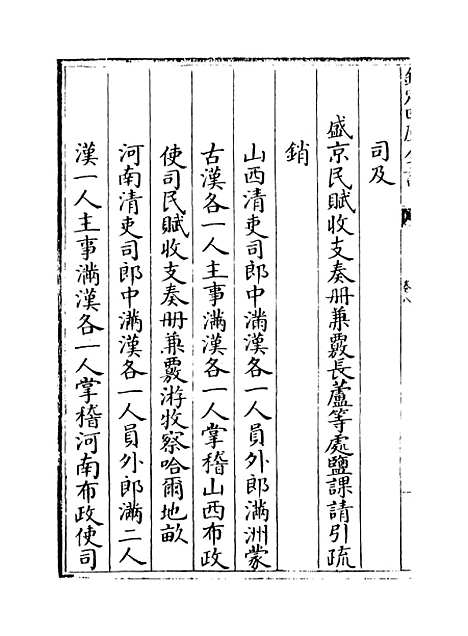 欽定四庫全書
卷八
司及
盛京民賦收支奏册兼覈長蘆等處鹽課請引疏
銷
山西清吏司郎中滿漢各一人員外郎滿洲蒙
古漢各一人主事滿漢各一人掌稽山西布政
使司民賦收支奏册兼覈游牧察哈爾地畝
河南清吏司郎中滿漢各一人員外郎滿二人
漢一人主事滿漢各一人掌稽河南布政使司